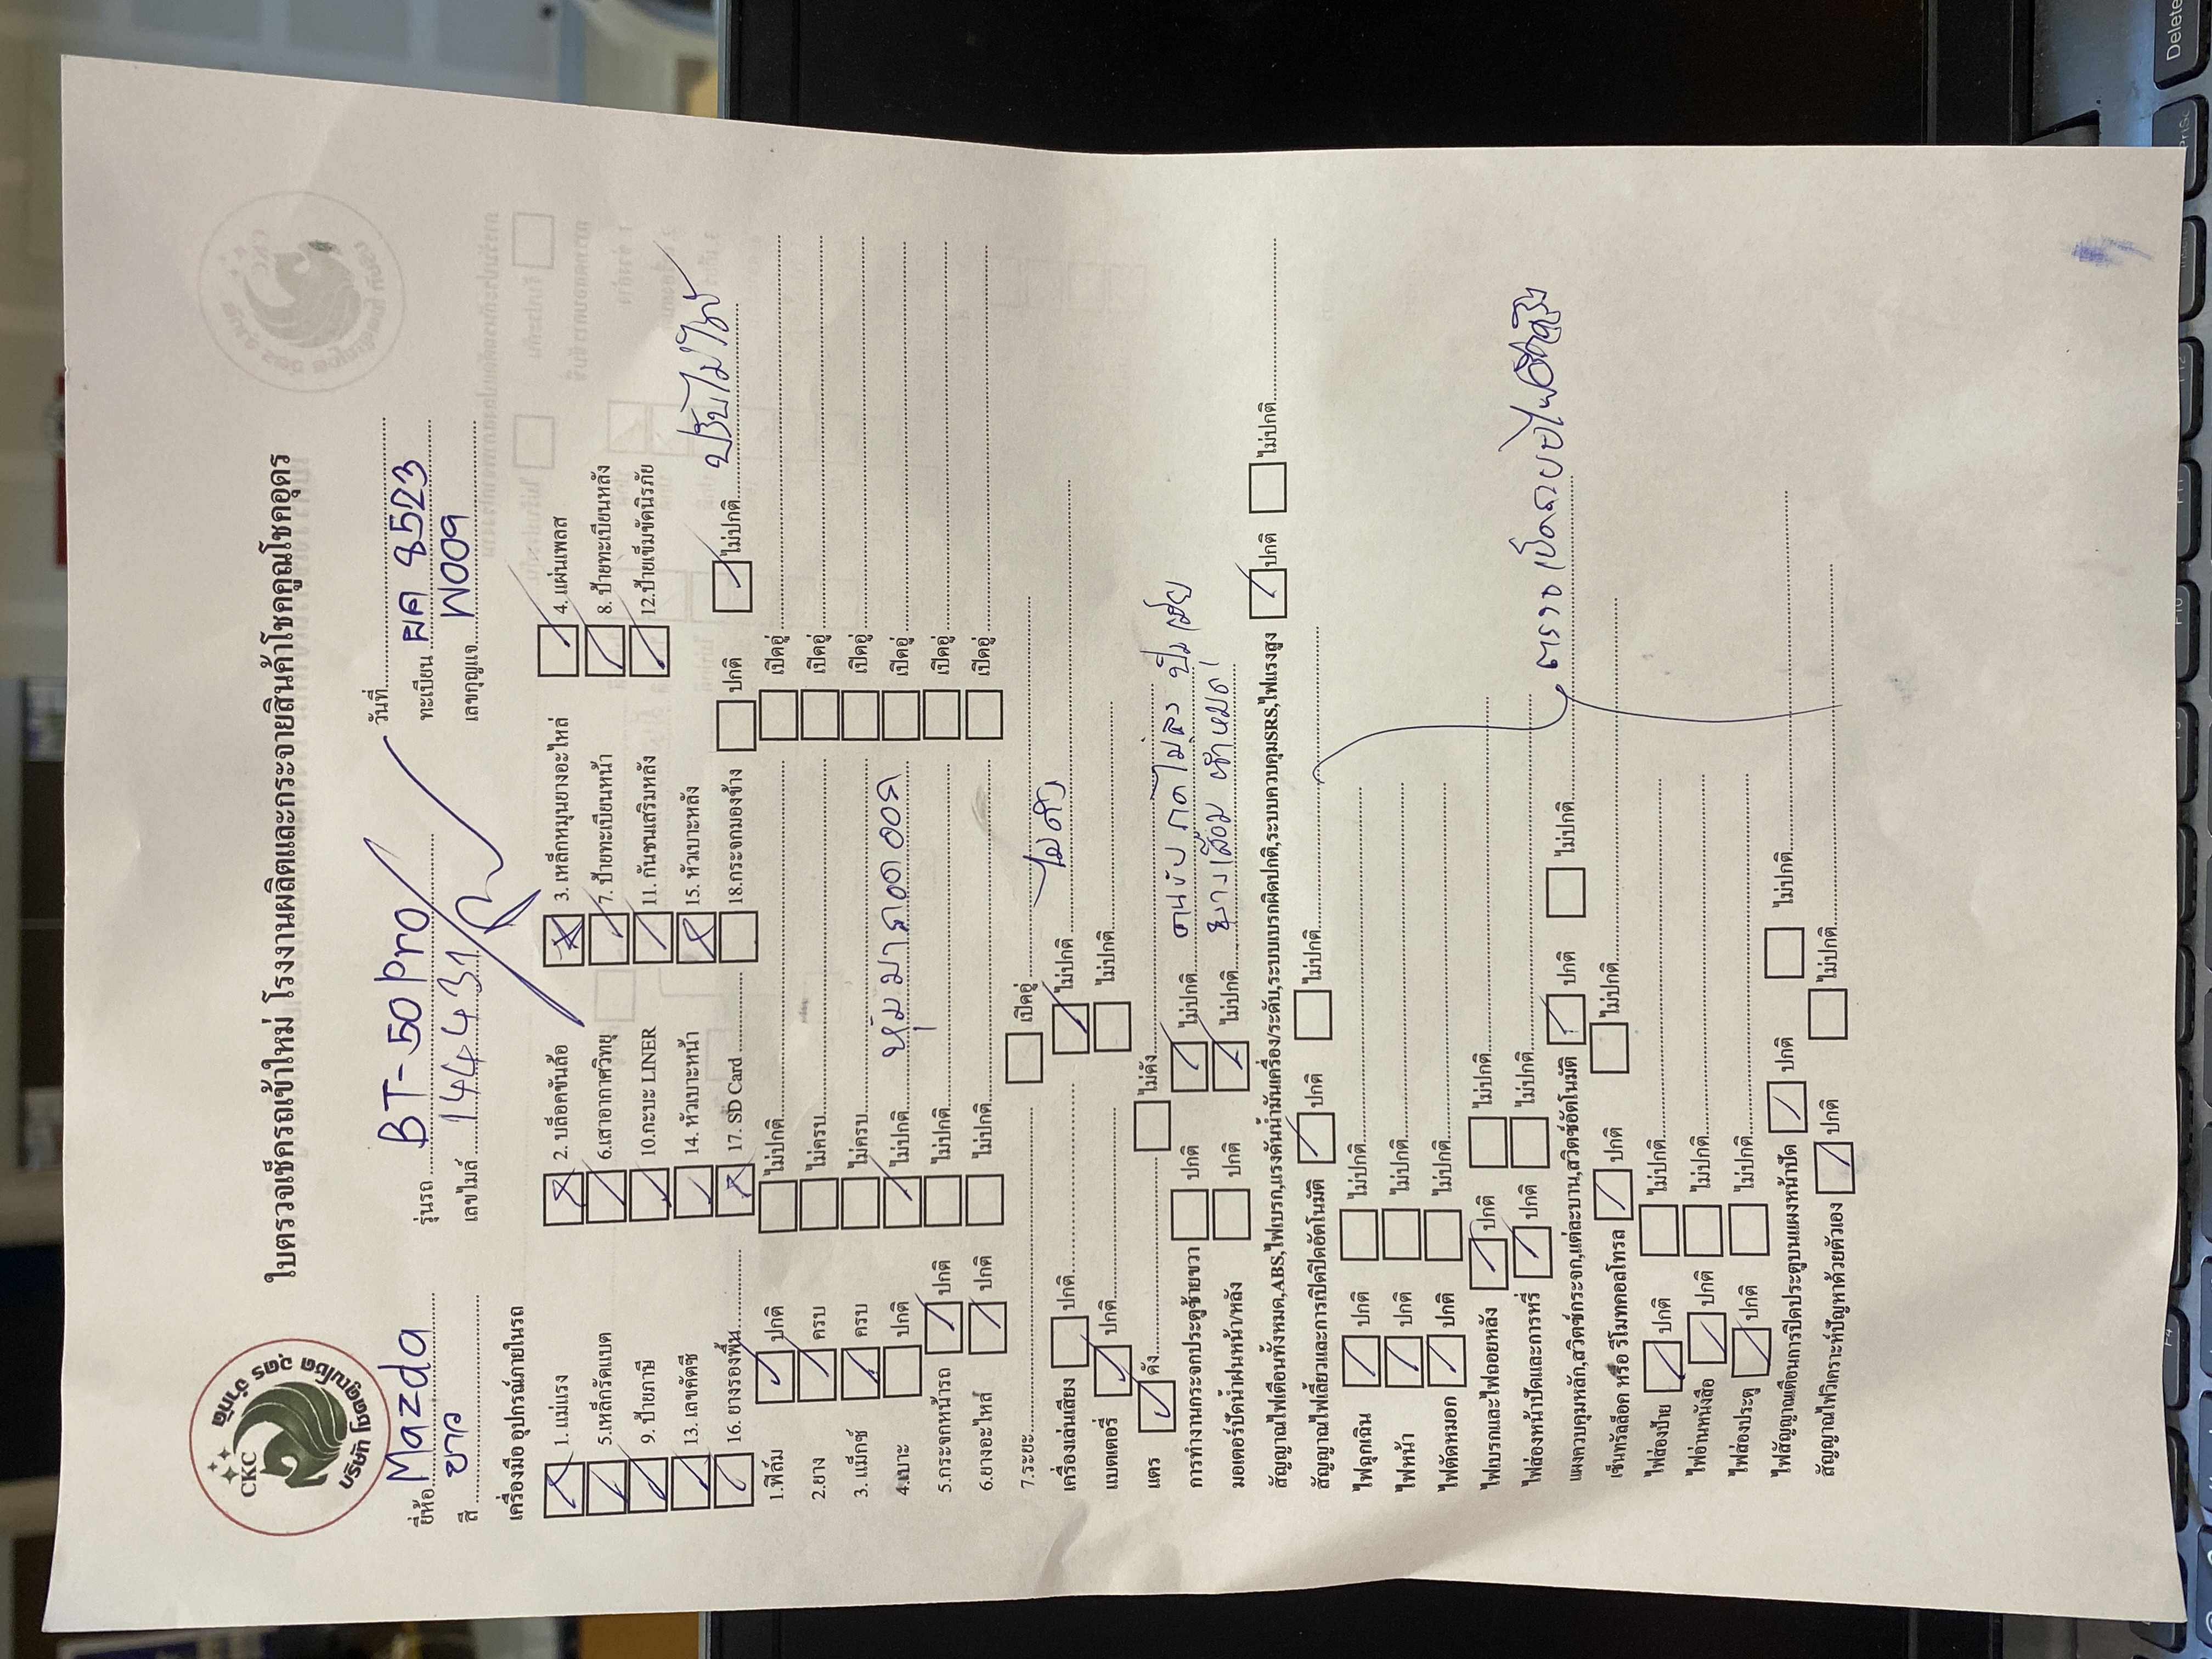 CKC
บริษัท คูณโชค อุดร จำกัด
ใบตรวจเช็กรถเข้าใหม่ โรงงานผลิตและกระจายสินค้าโชคคูณโชคอุดร
ยี่ห้อ Mazda รุ่นรถ BT-50 Pro วันที่
สี ขาว เลขไมล์ 144431 ทะเบียน ผค 8523
เลขกุญแจ W009
เครื่องมือ อุปกรณ์ภายในรถ
1. แม่แรง 2. บล็อคขันล้อ 3. เหล็กหมุนยางอะไหล่ 4. แผ่นเพลส
5.เหล็กกรัดแบต 6.เสาอากาศวิทยุ 7. ป้ายทะเบียนหน้า 8. ป้ายทะเบียนหลัง
9. ป้ายภาษี 10.กะบะ LINER 11. กันชนเสริมหลัง 12.ป้ายเข็มขัดนิรภัย
13. เลขคัตซี 14. หัวเบาะหน้า 15. หัวเบาะหลัง
16. ยางรองพื้น 17. SD Card 18.กระจกมองข้าง ปกติ ไม่ปกติ ปรับไม่ได้
1.ฟิล์ม ปกติ ไม่ปกติ เปิดอู่
2.ยาง ครบ ไม่ครบ เปิดอู่
3. แม็กซ์ ครบ ไม่ครบ เปิดอู่
4.เบาะ ปกติ ไม่ปกติ หุ้มมาถอดออก เปิดอู่
5.กระจกหน้ารถ ปกติ ไม่ปกติ เปิดอู่
6.ยางอะไหล่ ปกติ ไม่ปกติ เปิดอู่
7.ระยะ เปิดอู่
เครื่องเล่นเสียง ปกติ ไม่ปกติ ไม่ดัง
แบตเตอรี่ ปกติ ไม่ปกติ
แตร ดัง ไม่ดัง
การทำงานกระจกประตูซ้ายขวา ปกติ ไม่ปกติ คนขับ กดไม่ลง
มอเตอร์ปัดน้ำฝนหน้า/หลัง ปกติ ไม่ปกติ ยางเสื่อม
สัญญาณไฟเตือนทั้งหมด,ABS,ไฟเบรก,แรงดันน้ำมันเครื่อง/ระดับ,ระบบเบรกผิดปกติ,ระบบควบคุมSRS,ไฟแรงสูง ปกติ ไม่ปกติ
สัญญาณไฟเลี้ยวและการเปิดปิดอัตโนมัติ ปกติ ไม่ปกติ
ไฟฉุกเฉิน ปกติ ไม่ปกติ
ไฟหน้า ปกติ ไม่ปกติ
ไฟตัดหมอก ปกติ ไม่ปกติ
ไฟเบรกและไฟถอยหลัง ปกติ ไม่ปกติ
ไฟส่องหน้าปัดและการหรี่ ปกติ ไม่ปกติ
แผงควบคุมหลัก,สวิตช์กระจก,แต่ละบาน,สวิตช์อัตโนมัติ ปกติ ไม่ปกติ
เซ็นทรัลล็อค หรือ รีโมทคอลโทรล ปกติ ไม่ปกติ
ไฟส่องป้าย ปกติ ไม่ปกติ
ไฟอ่านหนังสือ ปกติ ไม่ปกติ
ไฟส่องประตู ปกติ ไม่ปกติ
ไฟสัญญาณเตือนการปิดประตูบนแผงหน้าปัด ปกติ ไม่ปกติ
สัญญาณไฟวิเคราะห์ปัญหาด้วยตัวเอง ปกติ ไม่ปกติ
Delete